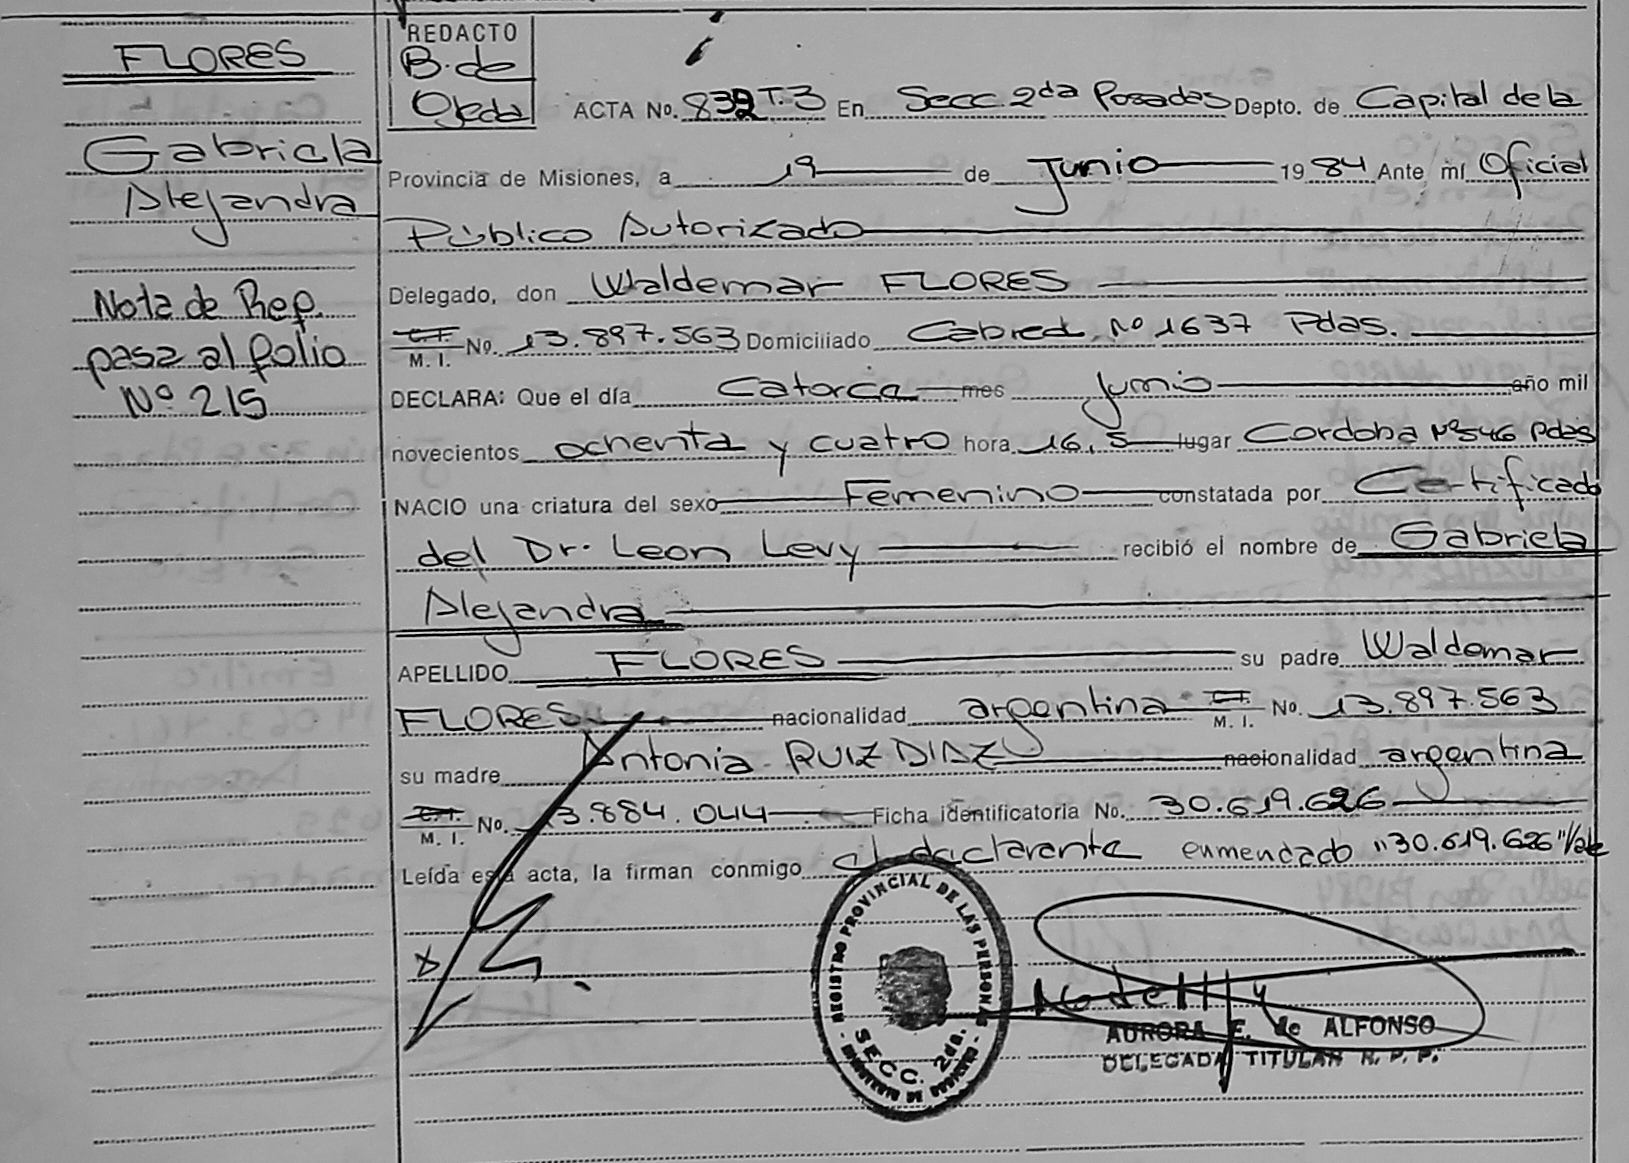 FLORES
Gabriela
Alejandra
Nota de Rep.
pasa al folio
Nº 215
REDACTO
B. de
Ojeda
ACTA No. 832 T.3 En Secc. 2da Posadas Depto. de Capital de la
Provincia de Misiones, a 19 de Junio 1984 Ante mí Oficial
Público Autorizado
Delegado, don Waldemar FLORES
C.I. M. I. No. 13.897.563 Domiciliado Cabred. Nº 1637 Pdas.
DECLARA: Que el día Catorce mes Junio año mil
novecientos ochenta y cuatro hora 16,5 lugar Cordoba Nº 546 Pdas
NACIO una criatura del sexo Femenino constatada por Certificado
del Dr. Leon Levy recibió el nombre de Gabriela
Alejandra
APELLIDO FLORES su padre Waldemar
FLORES nacionalidad argentina C.I. M. I. No. 13.897.563
su madre Antonia RUIZ DIAZ nacionalidad argentina
C.I. M. I. No. 13.884.044 Ficha identificatoria No. 30.619.626
Leída esta acta, la firman conmigo el declarante enmendado "30.619.626" Vale
REGISTRO PROVINCIAL DE LAS PERSONAS
SECC. 2da.
AURORA E. de ALFONSO
DELEGADA TITULAR R. P. P.